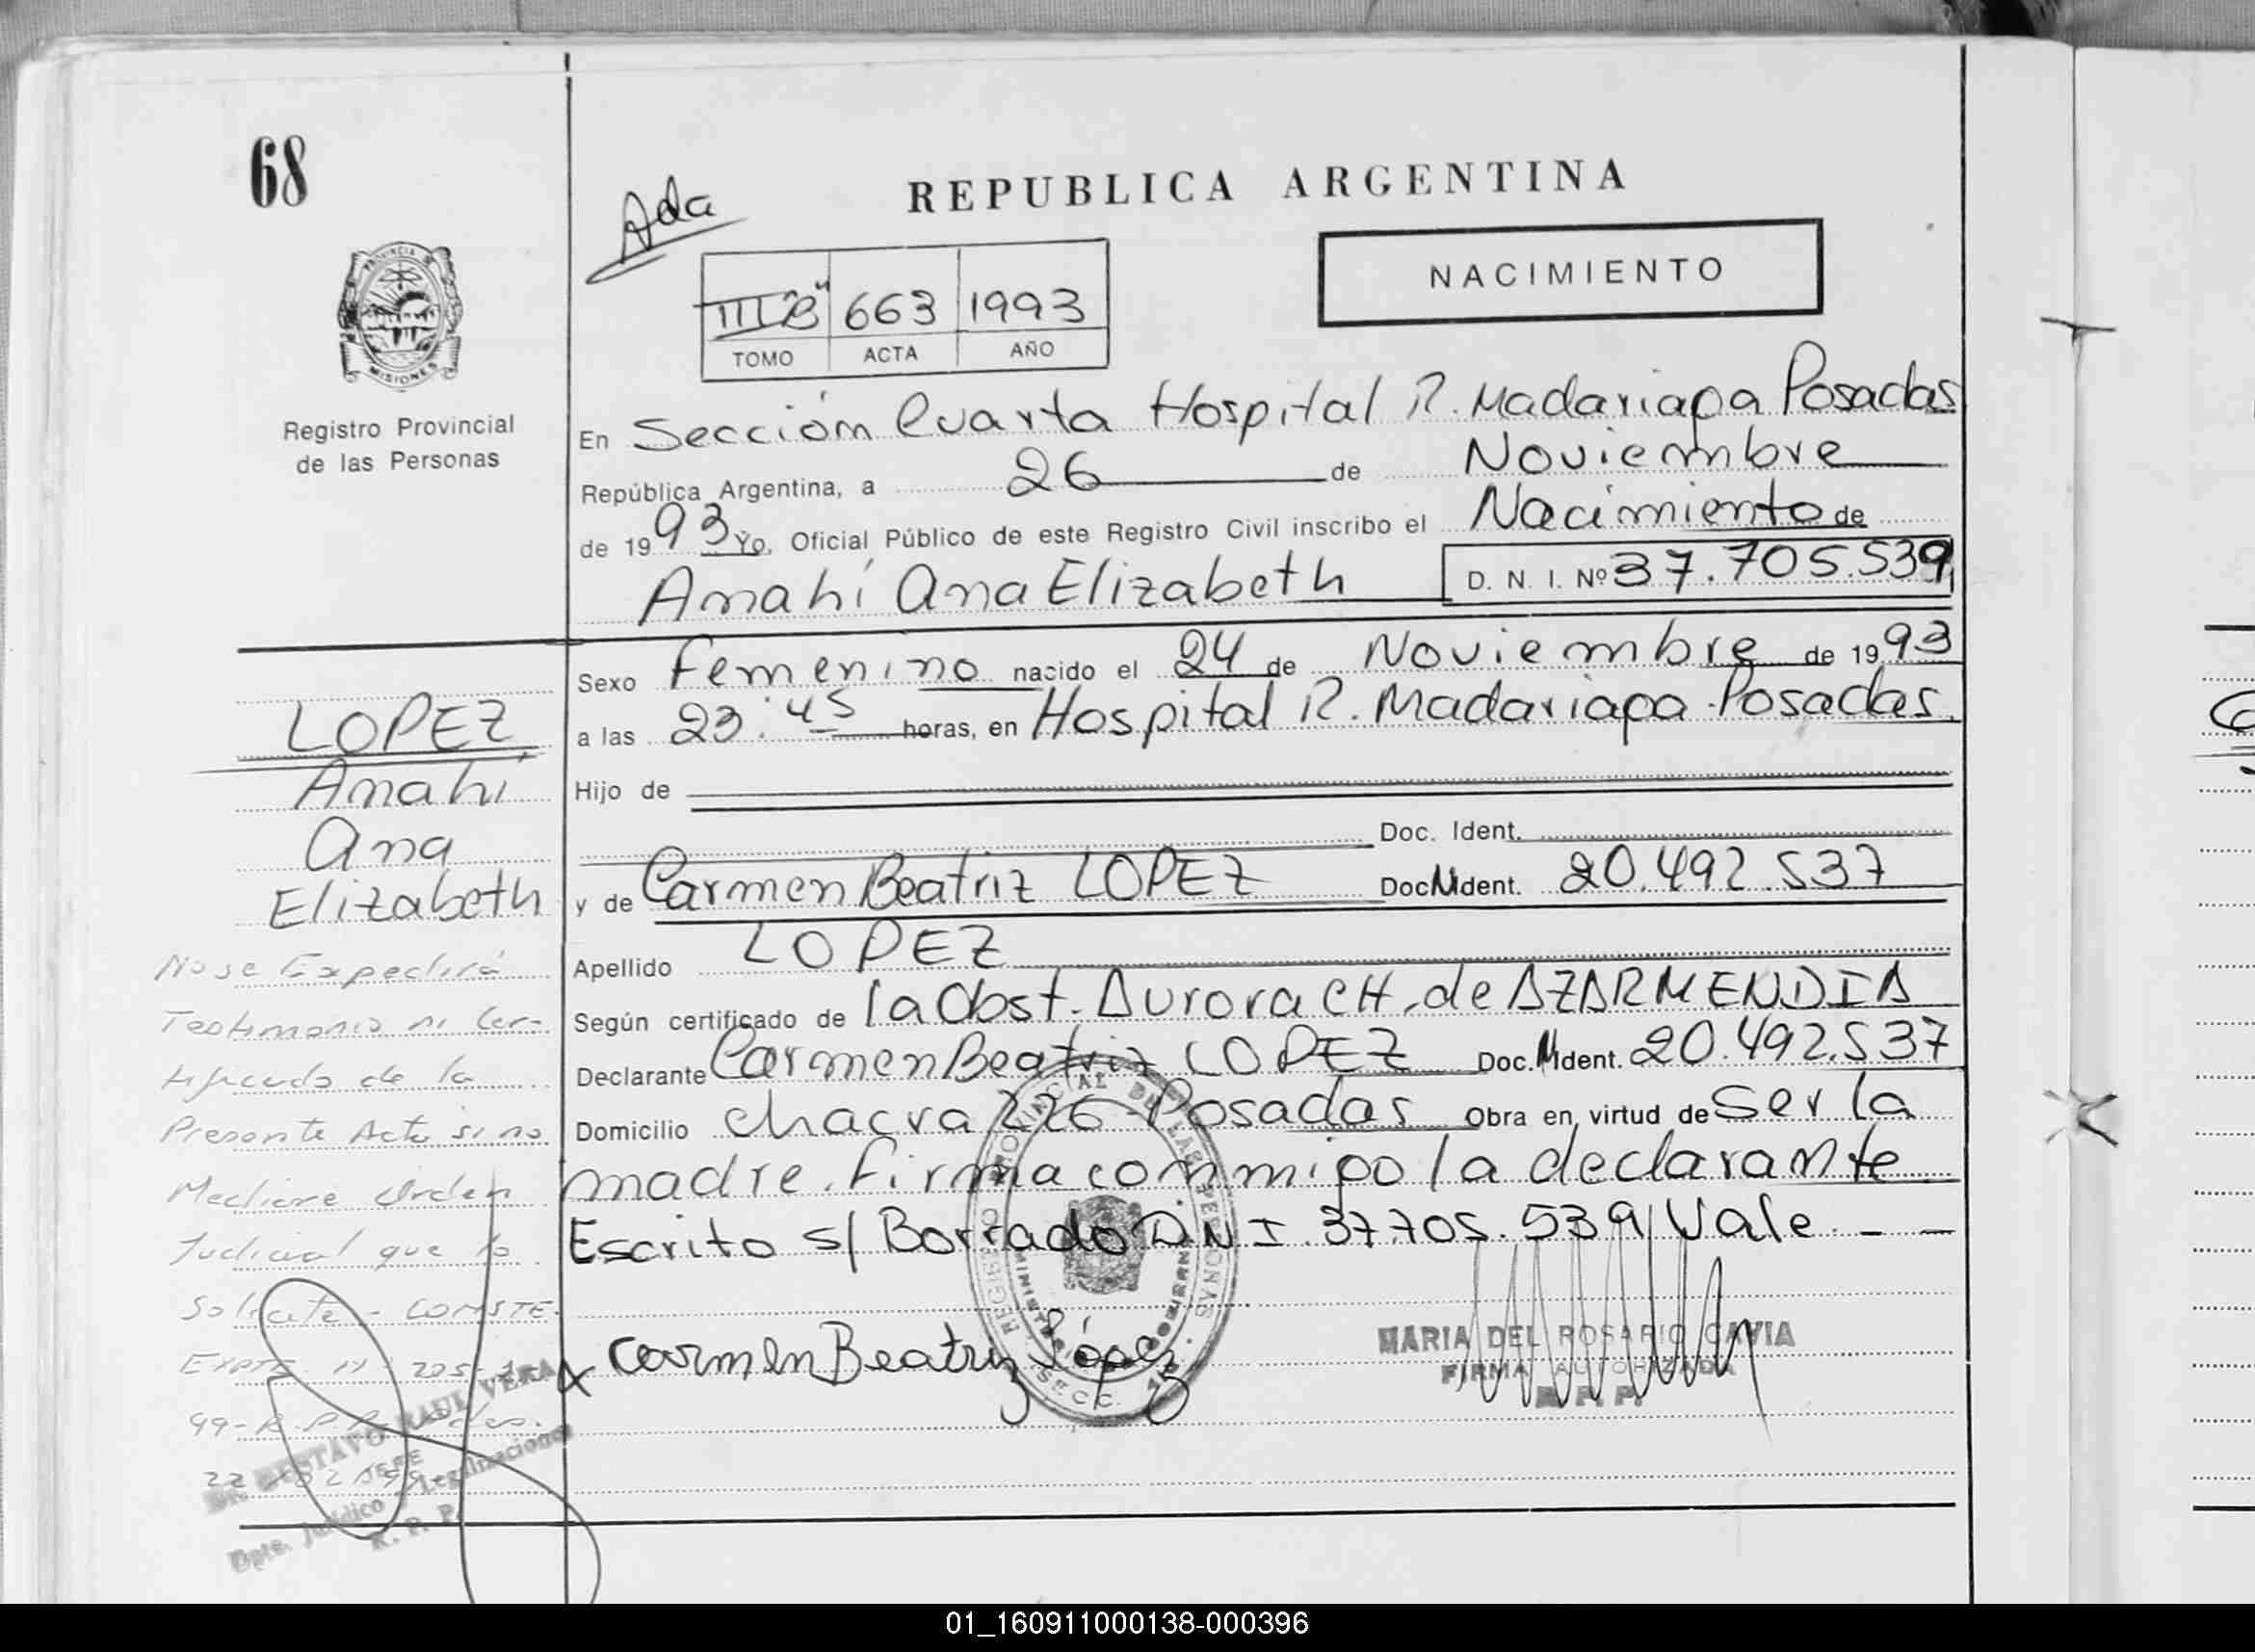 68
Ada
REPUBLICA ARGENTINA
III "B" 663 1993
TOMO ACTA AÑO
NACIMIENTO
PROVINCIA DE
MISIONES
Registro Provincial
de las Personas
En Sección Cuarta Hospital R. Madariaga Posadas
República Argentina, a 26 de Noviembre
de 1993 Yo, Oficial Público de este Registro Civil inscribo el Nacimiento de
Anahí Ana Elizabeth D. N. I. Nº 37.705.539
Sexo Femenino nacido el 24 de Noviembre de 1993
a las 23:45 horas, en Hospital R. Madariaga Posadas.
Hijo de
Doc. Ident.
y de Carmen Beatriz LOPEZ Doc. Ident. 20.492.537
Apellido LOPEZ
Según certificado de la Obst. Aurora CH. de AZARMENDIA
Declarante Carmen Beatriz LOPEZ Doc. Ident. 20.492.537
Domicilio chacra 226 - Posadas Obra en virtud de Ser la
madre. Firma conmigo la declarante
Escrito s/ Borrado D N I. 37.705.539/ Vale - -
Carmen Beatriz López
MARIA DEL ROSARIO CAVIA
FIRMA AUTORIZADA
R. P. P.
LOPEZ
Anahí
Ana
Elizabeth
No se Expedirá
Testimonio ni Cer-
tificado de la
Presente Acta si no
Mediare Orden
Judicial que lo
Solicite - CONSTE.
EXPTE
99- R.P.P.
GUSTAVO RAUL VERA
JEFE
Dpto. Jurídico y Legalizaciones
R. P. P.
REGISTRO PROVINCIAL DE LAS PERSONAS
01_160911000138-000396